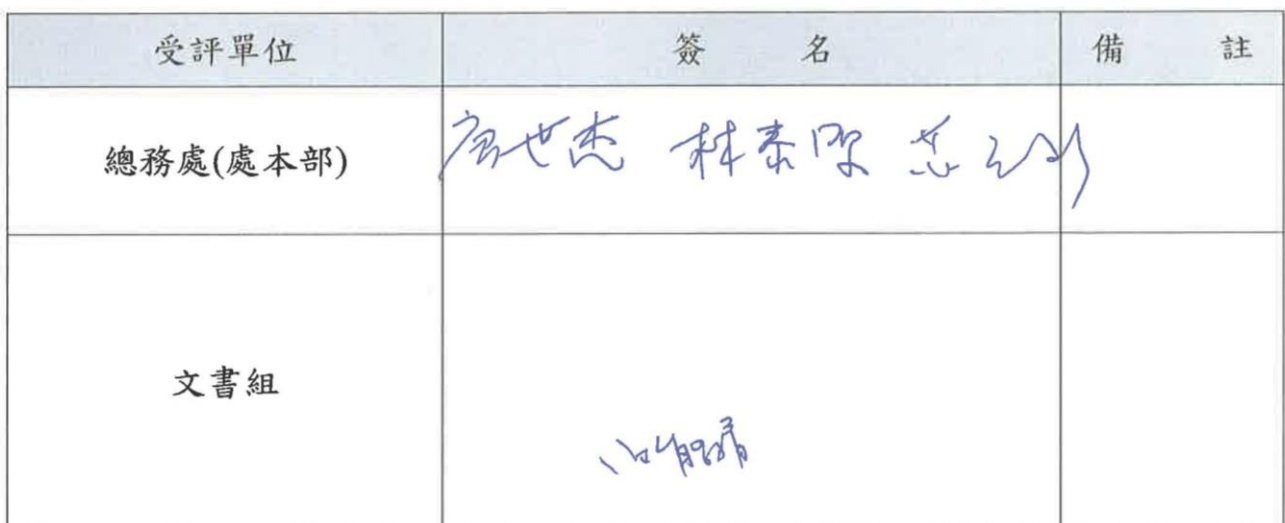 受評單位 簽名 備註
總務處(處本部) 唐世杰 林泰堅
文書組